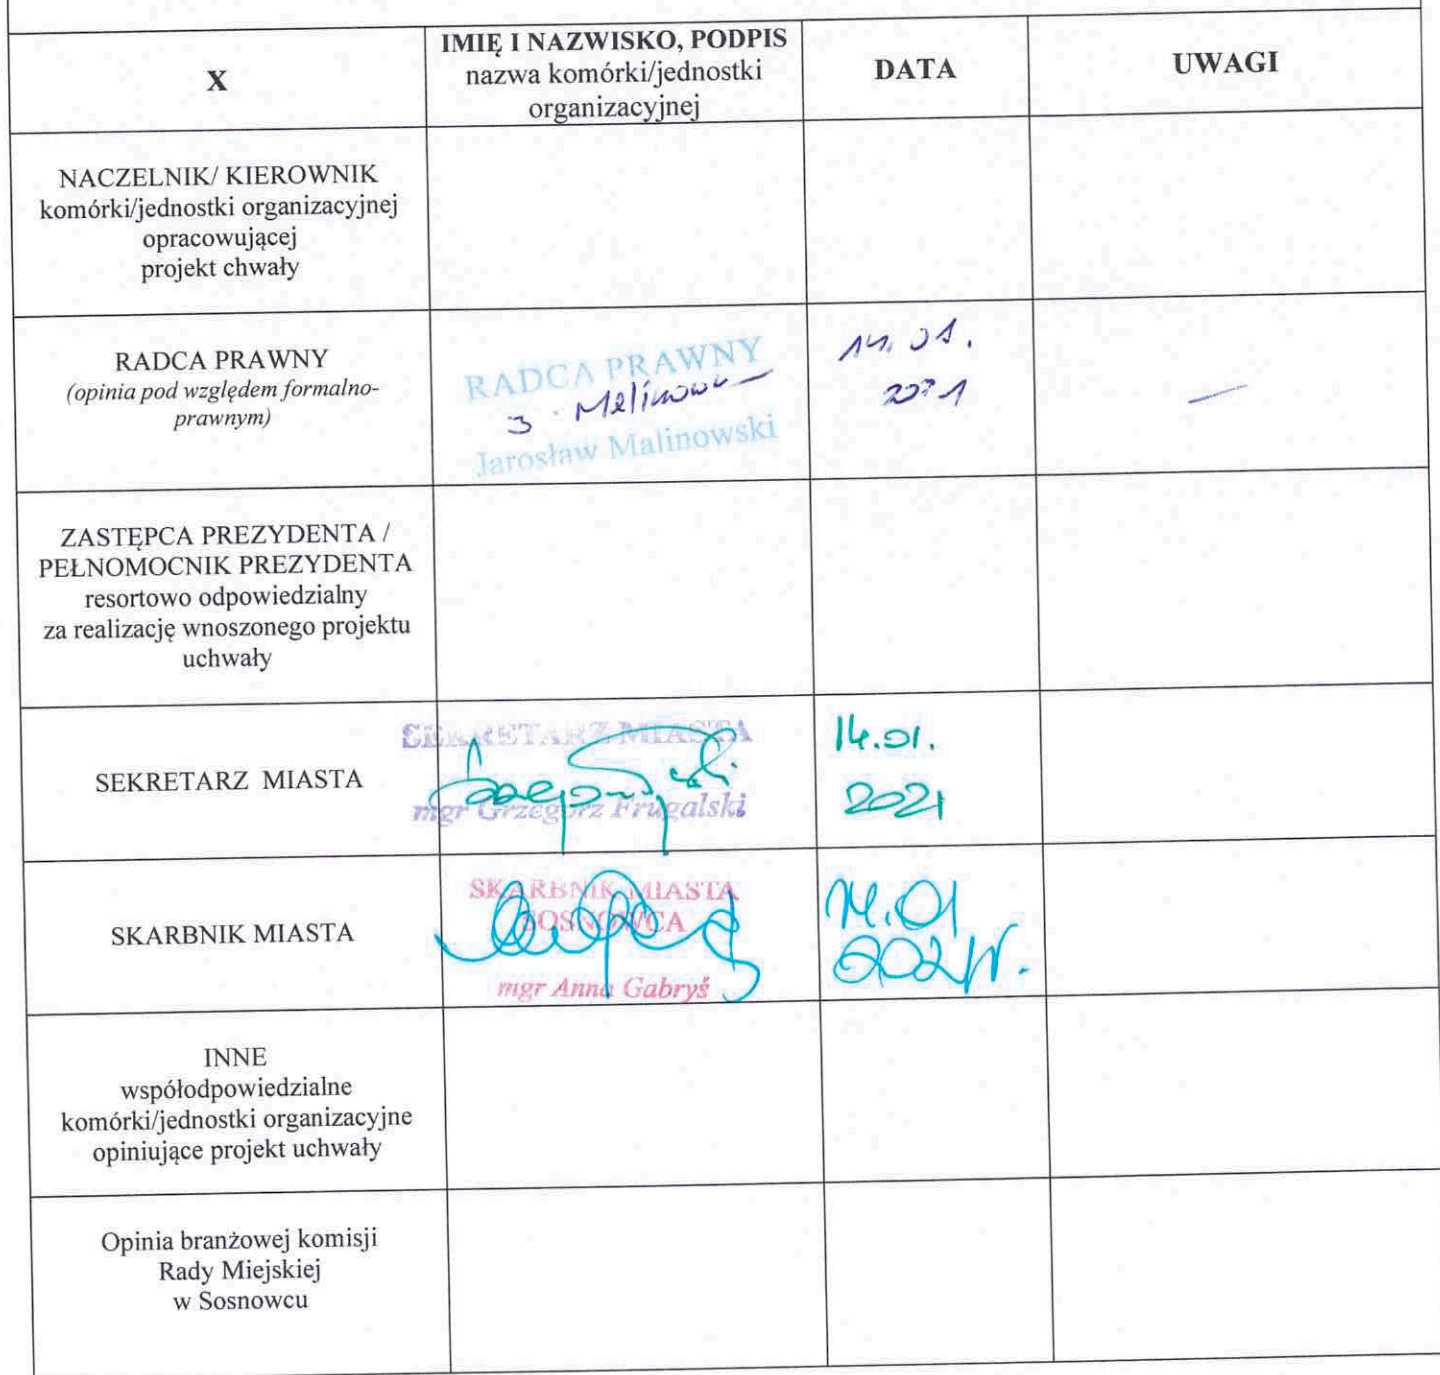 X
IMIĘ I NAZWISKO, PODPIS
nazwa komórki/jednostki
organizacyjnej
DATA
UWAGI
NACZELNIK/ KIEROWNIK
komórki/jednostki organizacyjnej
opracowującej
projekt chwały
RADCA PRAWNY
(opinia pod względem formalno-
prawnym)
RADCA PRAWNY
Jarosław Malinowski
14.01.
2021
ZASTĘPCA PREZYDENTA /
PEŁNOMOCNIK PREZYDENTA
resortowo odpowiedzialny
za realizację wnoszonego projektu
uchwały
SEKRETARZ MIASTA
SEKRETARZ MIASTA
mgr Grzegorz Frugalski
14.01.
2021
SKARBNIK MIASTA
SKARBNIK MIASTA
SOSNOWCA
mgr Anna Gabryś
14.01
2021r.
INNE
współodpowiedzialne
komórki/jednostki organizacyjne
opiniujące projekt uchwały
Opinia branżowej komisji
Rady Miejskiej
w Sosnowcu